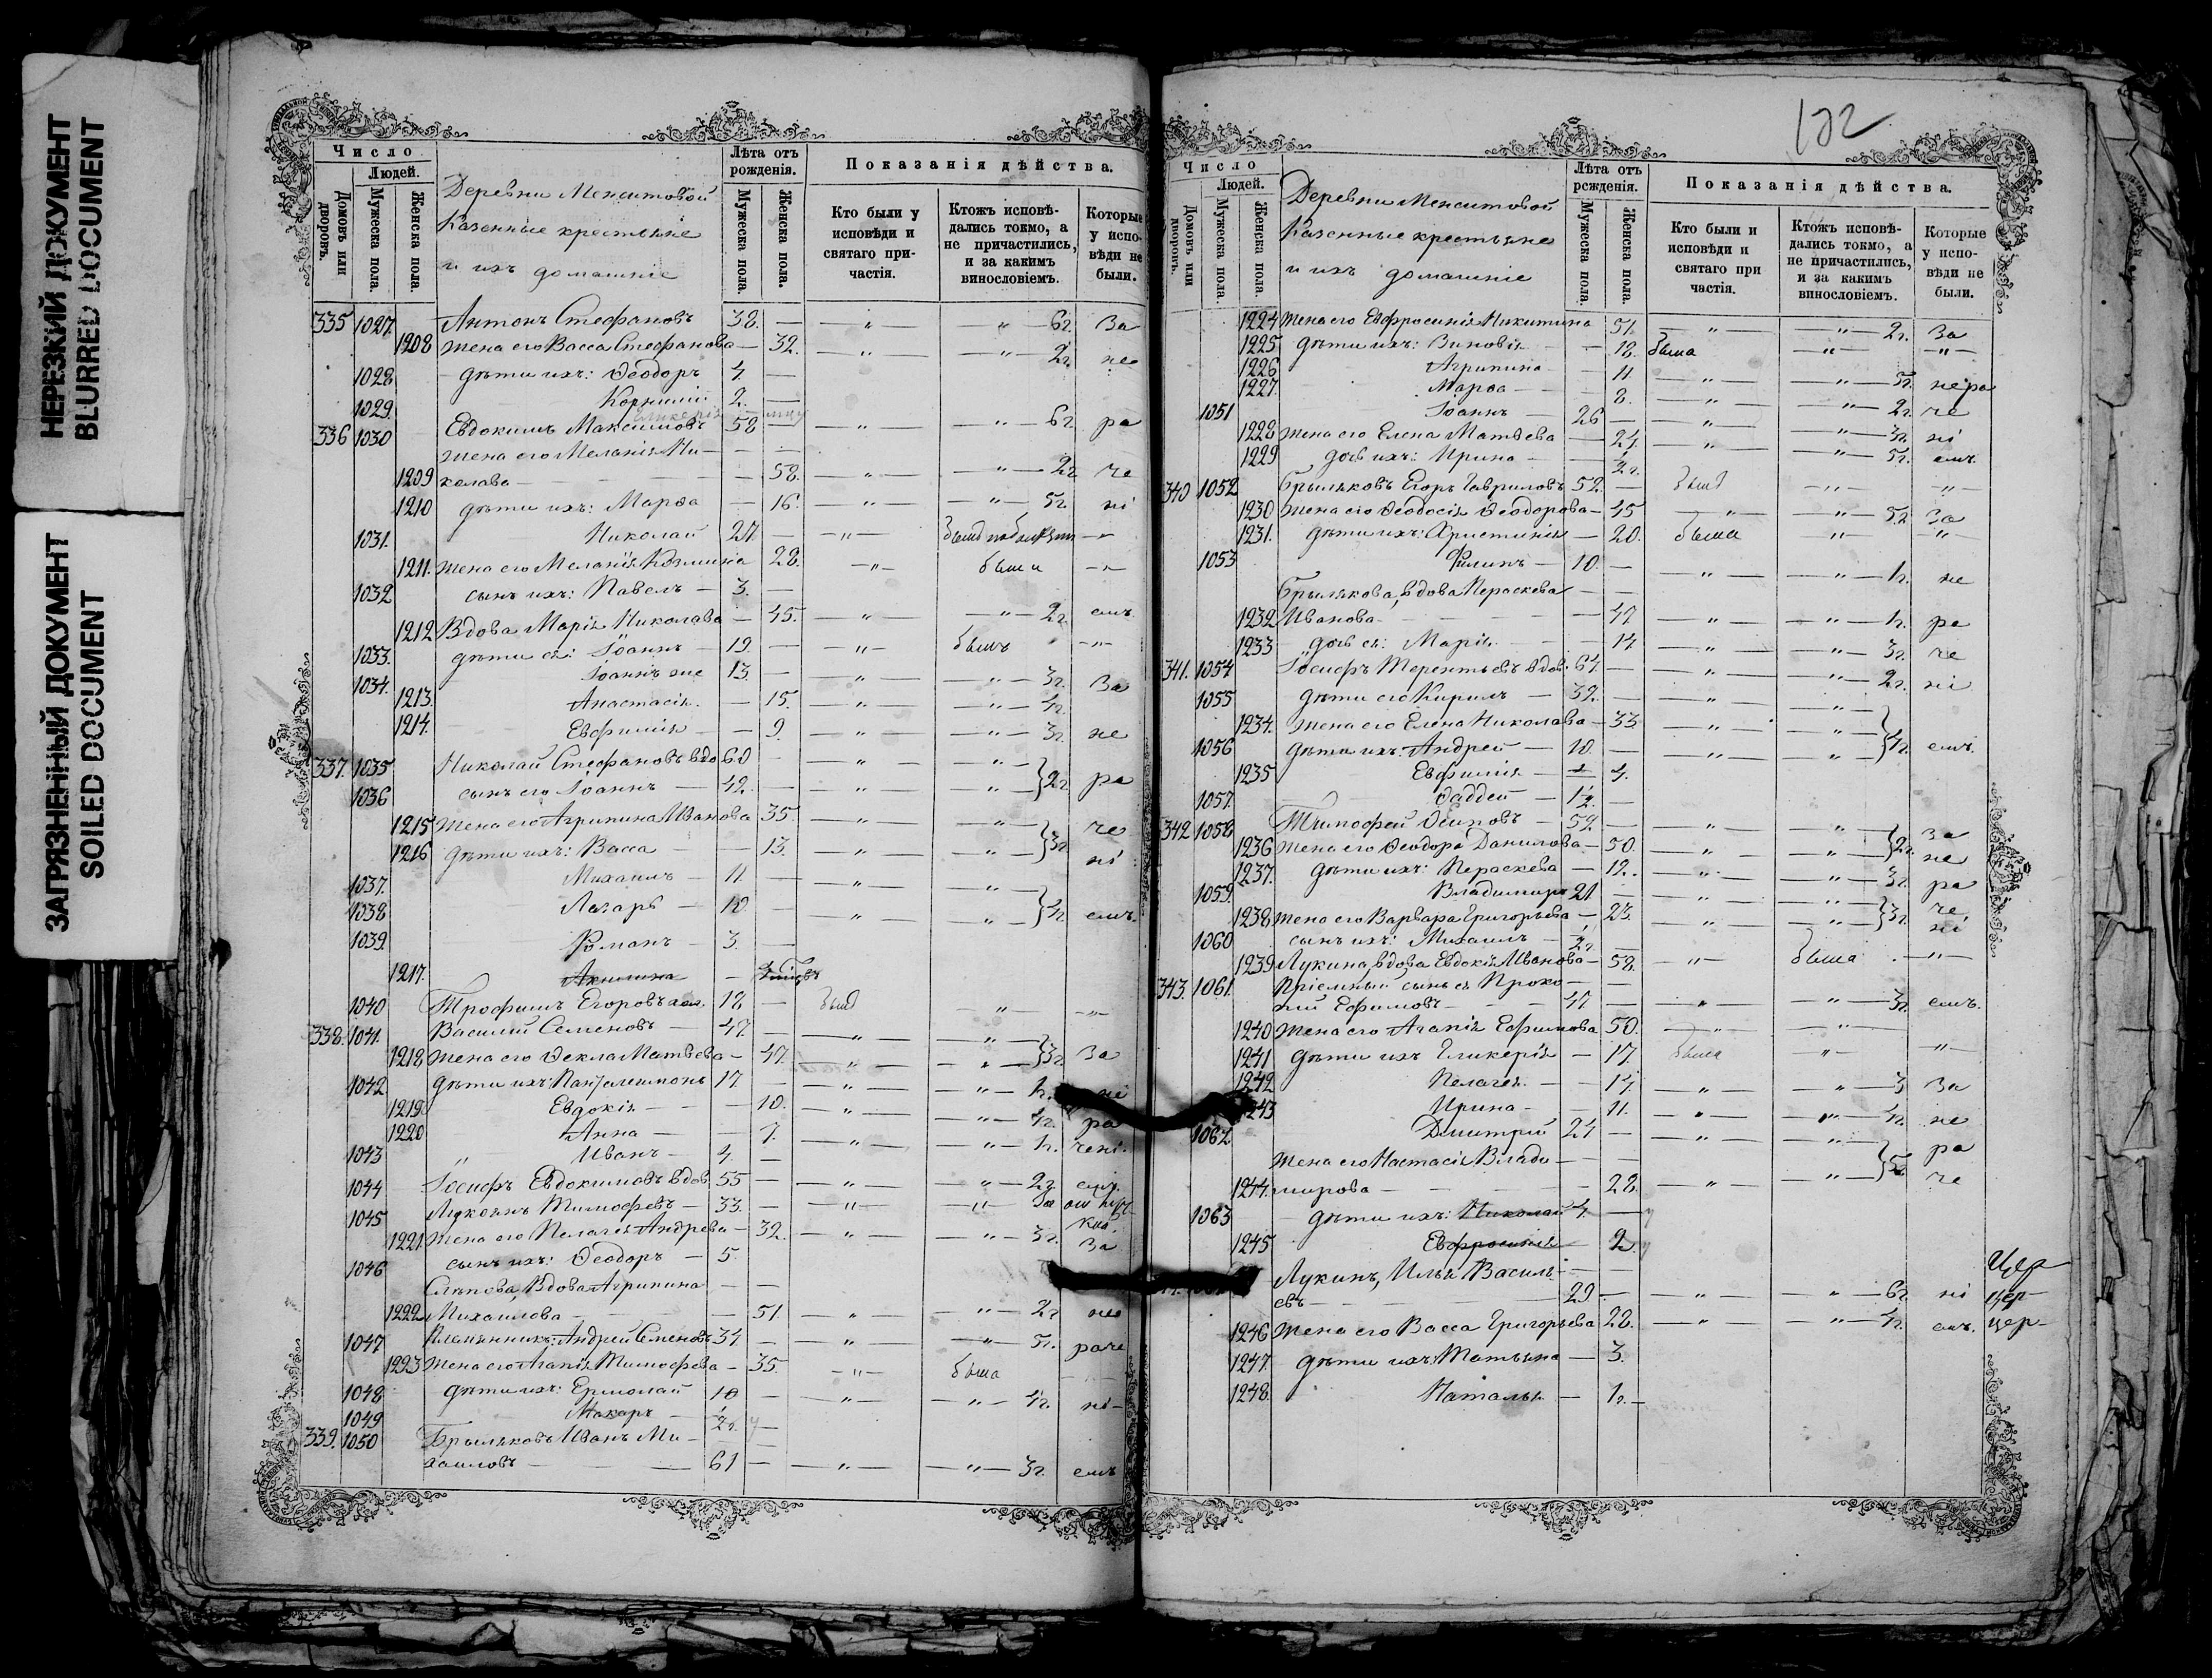 НЕРЕЗКИЙ ДОКУМЕНТ
BLURRED DOCUMENT
ЗАГРЯЗНЕННЫЙ ДОКУМЕНТ
SOILED DOCUMENT
Число
Людей.
Домовъ или дворовъ.
Мужеска пола.
Женска пола.
Деревни Менситовой
Казенные крестьяне
и ихъ домашніе
Лѣта отъ рожденія.
Мужеска пола.
Женска пола.
Показанія дѣйства.
Кто были у исповѣди и святаго причастія.
Ктожъ исповѣдались токмо, а не причастились, и за какимъ винословіемъ.
Которые у исповѣди не были.
335 1027 Антонъ Стефановъ 38. — „ „ 6г. За
1208 жена его Васса Стефанова — 32. „ „ 2г. не
1028 дѣти ихъ: Ѳеодоръ 4. —
1029. Корнилій 2. —
336 1030 Евдокимъ Максимовъ 58 — „ „ 6г. ра
жена его Меланія Ни-
1209 колава — 58. „ „ 2г. че
1210 дѣти ихъ: Марѳа — 16. „ „ 5г. ні
1031. Николай 27. — „
1211. жена его Меланія Козмина 28. „ быша „
1032 сынъ ихъ: Павелъ — 3. —
1212 Вдова Марія Николава — 45. „ „ 2г. емъ
1033. дѣти ея: Іоаннъ — 19. — „ „
1034. Іоаннъ же 13. — „ „ 3г. За
1213. Анастасія — 15. „ „ 4г.
1214. Евфимія — 9. „ „ 3г. не
337. 1035 Николай Стефановъ вдо 60 — „ „
1036 сынъ его Іоаннъ — 42. — „ „ 2г. ра
1215 жена его Агрипина Иванова 35. „ „ че
1216 дѣти ихъ: Васса — 13. „ „ 3г. ні
1037. Михаилъ — 11 — „ „
1038 Лазарь — 10. — „ „ 4г. емъ
1039. Романъ — 3. —
1217. Акилина —
1040 Трофимъ Егоровъ 18 — былъ „ „
338. 1041. Василій Семеновъ — 47 — „ „
1218 жена его Ѳекла Матвѣева — 47. „ „ 3г. За
1042 дѣти ихъ: Пантелеимонъ 17 — „ „ 1г. не
1219. Евдокія — 10. „ „ 4г. ра
1220 Анна — 7. „ „ 1г. чені.
1043 „ Иванъ — 4. —
1044 Іосифъ Евдокимовъ вдов. 55 — „ „ 2г. емъ.
1045 Лукіянъ Тимофевъ — 33. — „ „
1221. жена его Пелагея Андрева — 32. „ „ 3г. За
1046 сынъ ихъ: Ѳеодоръ — 5.
Слѣпова, Вдова Агрипина
1222 Михаилова — 51. „ „ 2г. не
1047 Племянникъ: Андрей Семеновъ 34. — „ „ 5г. раче
1223 жена его Агапія Тимофева — 35. „ быша
1048 дѣти ихъ: Ермолай 10 — „ „ 4г. ні-
1049 Макаръ
339. 1050 Брыляковъ Иванъ Ми-
хаиловъ 61 — „ „ 3г. емъ
Число
Людей.
Домовъ или дворовъ.
Мужеска пола.
Женска пола.
Деревни Менситовой
Казенные крестьяне
и ихъ домашніе
Лѣта отъ ржденія.
Мужеска пола.
Женска пола.
Показанія дѣйства.
Кто были и исповѣди и святаго при частія.
Ктожъ исповѣдались токмо, а не причастились, и за какимъ винословіемъ.
Которые у исповѣди не были.
1224 жена его Евфросинія Никитина 51. „ „ 2г. За
1225 дѣти ихъ: Зиновія — 18. Быша „ „
1226 Агрипина — 11 „ „ 5г. нера
1227. Марѳа — 8. „ „ 2г. че
1051 Іоаннъ — 26 — „ „ 3г. ні
1228 жена его Елена Матвѣева — 24. „ „ 5г. емъ.
1229 дочь ихъ: Ирина —
340 1052 Брыляковъ Егоръ Гавриловъ 52. — былъ „ „
1230 жена его Ѳеодосія Ѳеодорова — 45 „ „ 5г. За
1231. дѣти ихъ: Христинія — 20. быша „ „
1053 Филипъ — 10. — „ „ 1г. не
Брылякова, вдова Пераскева
1232 Иванова — 47 „ „ 1г. ра
1233 дочь ея: Марія — 14 „ „ 3г. че
341. 1054 Іосифъ Терентьевъ вдов. 64 — „ „ 2г. ні
1055 дѣти его Кирилъ — 32. — „ „
1234. жена его Елена Николава — 33 „ „
1056 дѣти ихъ: Андрей — 10. — „ „ 4г. емъ.
1235 Евфимія — 4.
1057. Ѳаддей —
342 1058 Тимофей Осиповъ — 52. — „ „ За
1236 жена его Ѳеодора Данилова — 50. „ „ 2г. не
1237. дѣти ихъ: Пераскева — 12. „ „ 3г. ра
1059. Владимиръ 21 — „ „ че
1238 жена его Варвара Григорьева — 23. „ „ 3г. ні
1060 сынъ ихъ: Михаилъ —
1239 Лукина, вдова Евдокія Иванова — 58. „ быша „
343. 1061. Пріемный сынъ ея Проко-
пій Ефимовъ — 47 — „ „ 3г. емъ.
1240 жена его Агапія Ефимова 50. „ „
1241 дѣти ихъ Гликерія — 17. быша „ „
1242 Пелагея — 14. „ „ 3 За
1243 Ирина — 11. „ „ 4г. не
1062 Дмитрій 24 — „ „ ра
жена его Настасія Влади-
1244. мирова — 22. „ „ 5г. че
1063 дѣти ихъ: Николай 4. —
1245 Евфросинія 2.
Лукинъ, Илья Василь-
евъ 29 — „ „ 6г. ні
1246 жена его Васса Григорьева 28. „ „ 4г. емъ.
1247. дѣти ихъ: Татьяна — 3.
1248. Наталья — 1г.